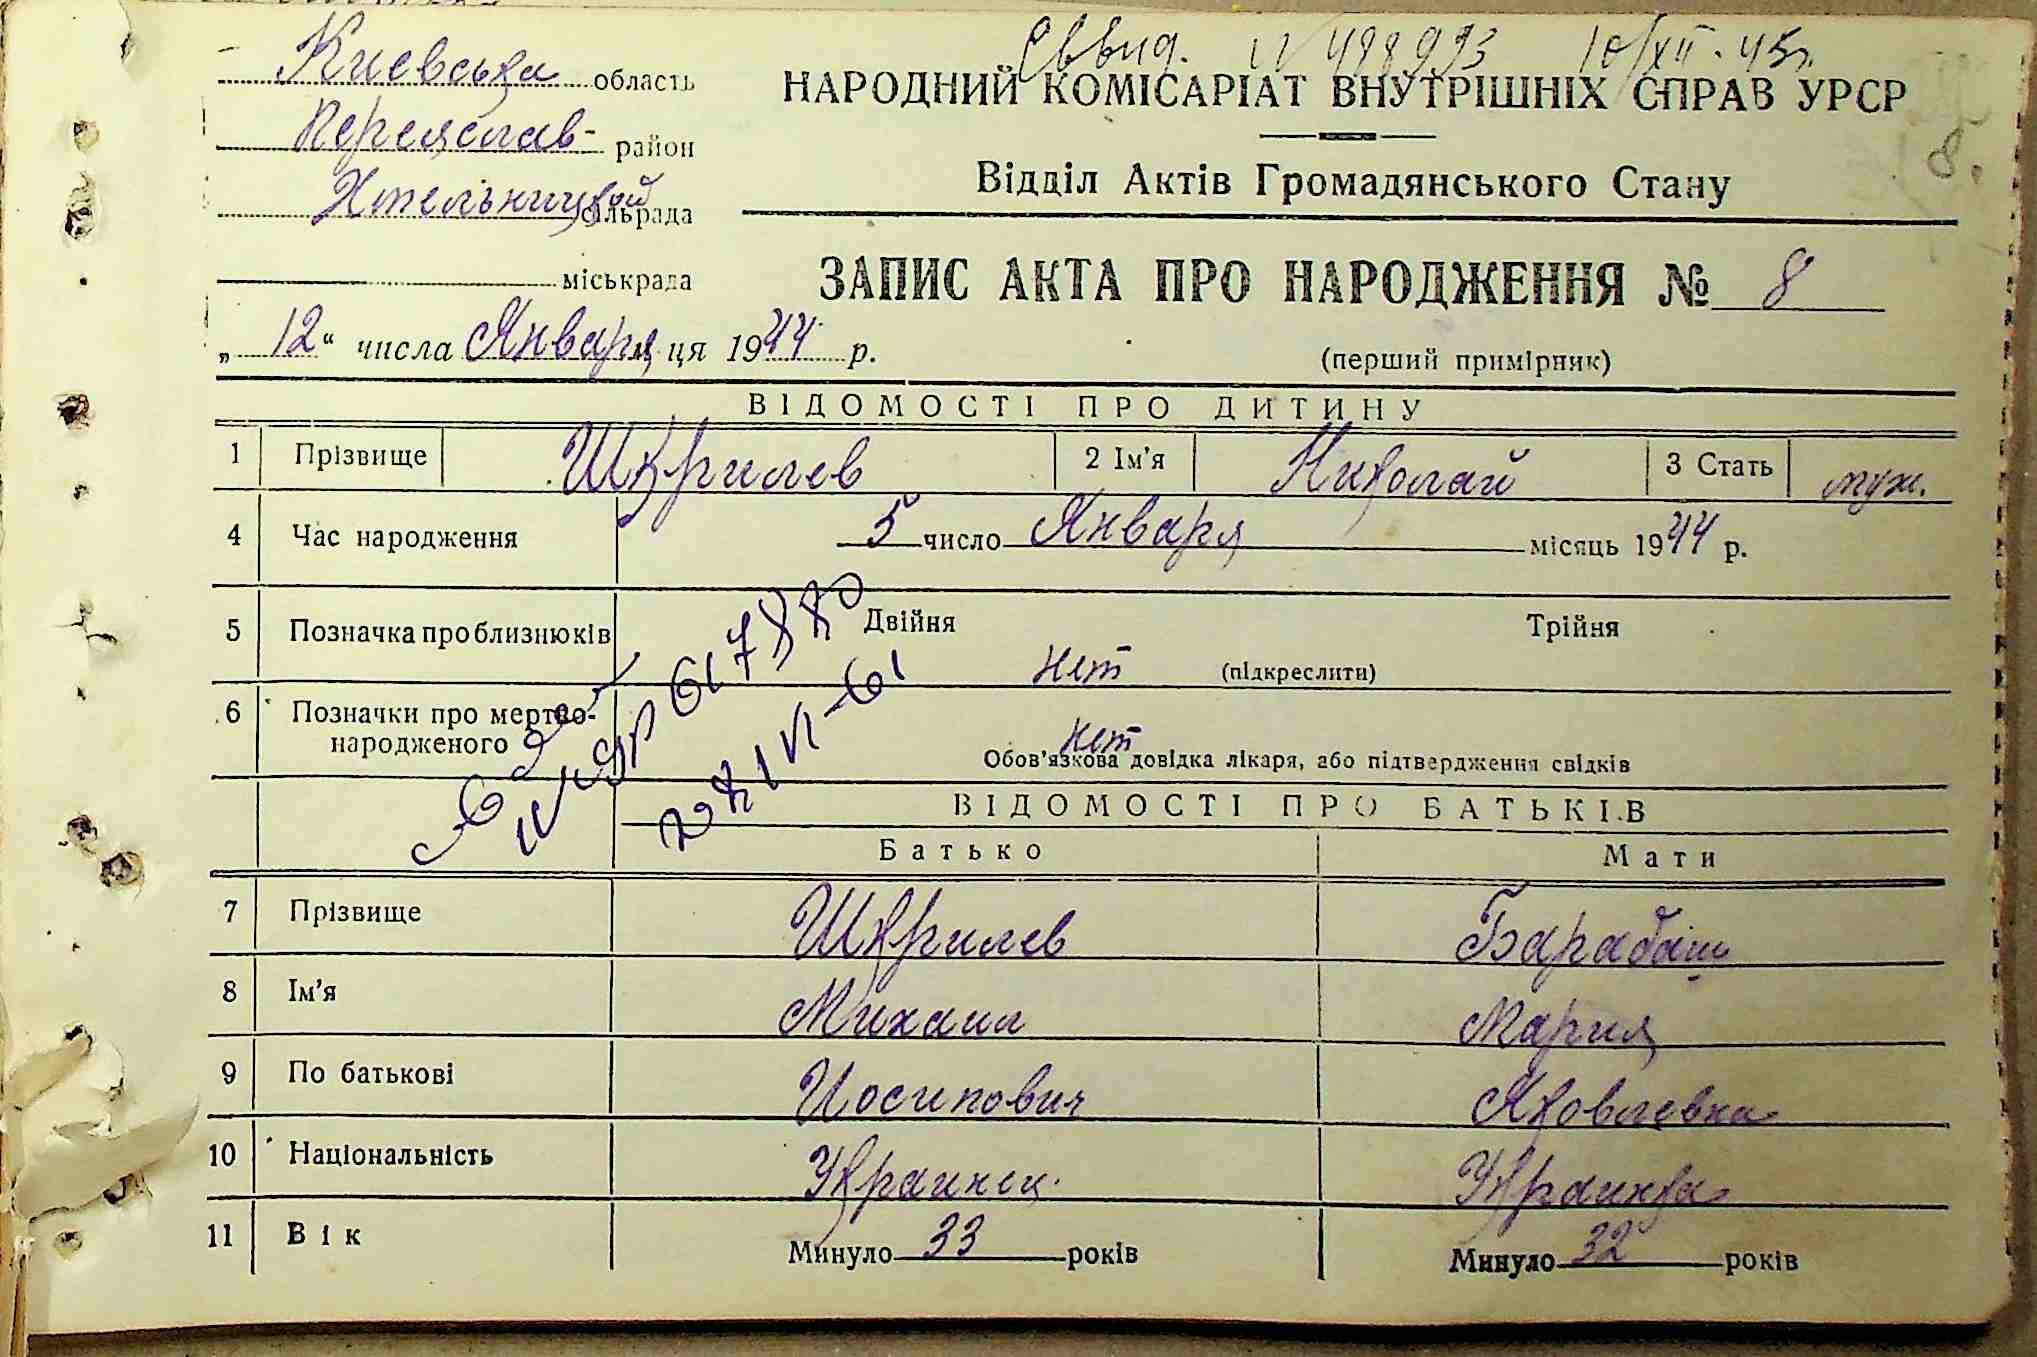 Киевська область
Переяслав-
район
Хмельницкий сільрада
міськрада
Свид. N 498993 10/XII-45г.
НАРОДНИЙ КОМІСАРІАТ ВНУТРІШНІХ СПРАВ УРСР
8.
Відділ Актів Громадянського Стану
ЗАПИС АКТА ПРО НАРОДЖЕННЯ № 8
„12“ числа Января м-ця 1944 р.
(перший примірник)
ВІДОМОСТІ ПРО ДИТИНУ
1 Прізвище Шкрилев 2 Ім'я Николай 3 Стать муж.
4 Час народження 5 число Января місяць 1944 р.
5 Позначка про близнюків Двійня Трійня
нет (підкреслити)
6 Позначки про мертво-
народженого нет
Обов'язкова довідка лікаря, або підтвердження свідків
ВІДОМОСТІ ПРО БАТЬКІВ
Батько Мати
7 Прізвище Шкрилев Барабаш
8 Ім'я Михаил Мария
9 По батькові Иосипович Яковлевна
10 Національність Украинец. Украинка
11 Вік Минуло 33 років Минуло 32 років